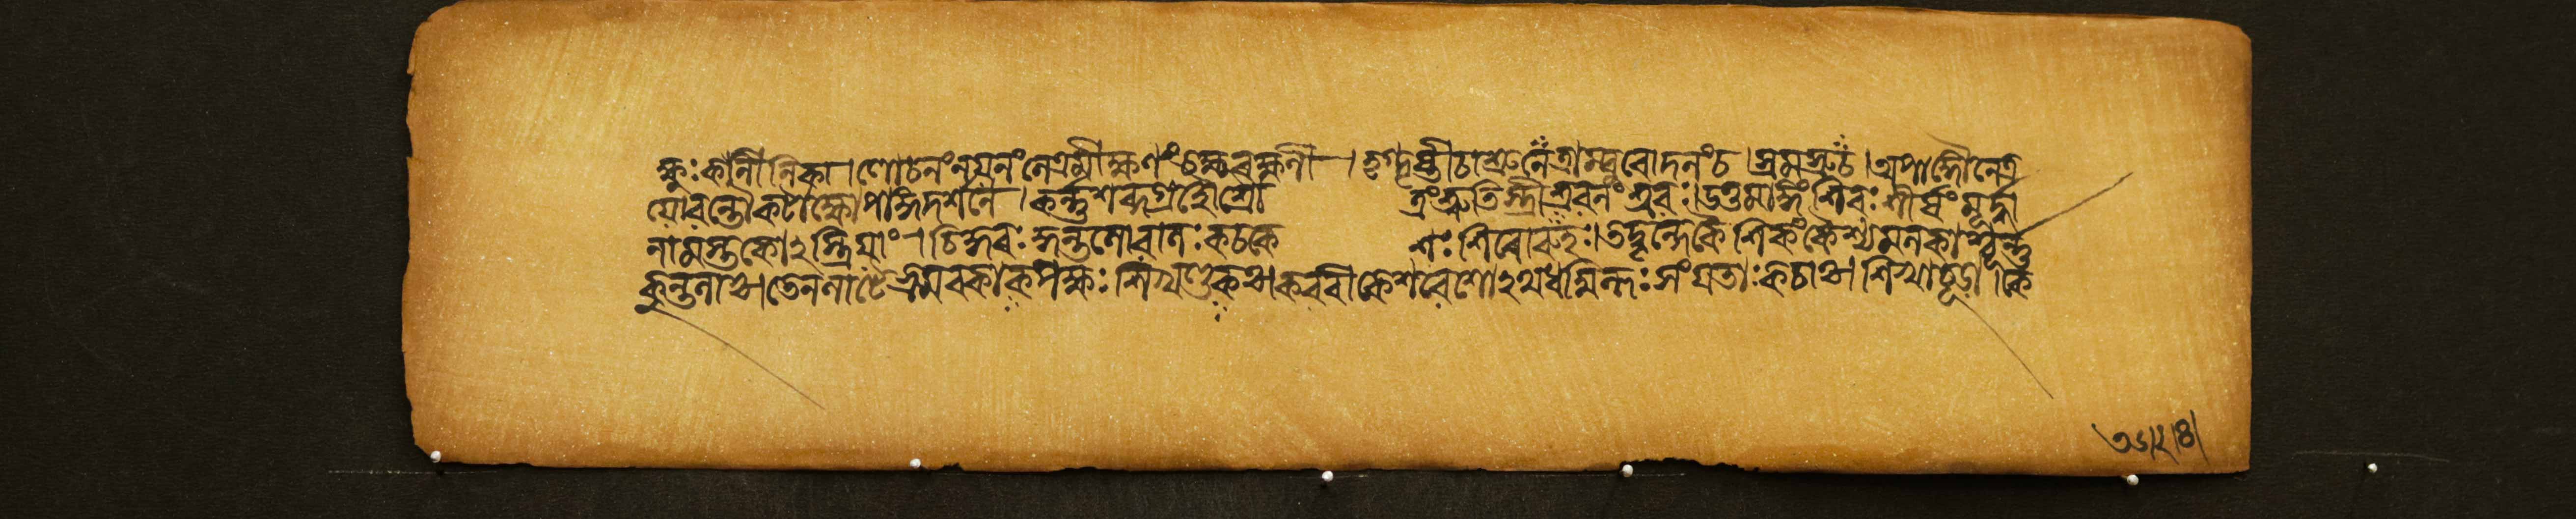 ক্ষুঃ কনীনিকা। লোচনং নয়নং নেত্রমীক্ষণং চক্ষুৰক্ষিণী। দৃগ্দৃষ্টী চাশ্রু নেত্রাম্বু ৰোদনং চাস্রমশ্রু চ। অপাঙ্গৌ নেত্র
য়োৰন্তৌ কটাক্ষোপাঙ্গদর্শনে। কর্ন্নশব্দগ্রহৌ শ্রো ত্রং শ্রুতিস্ত্রী শ্রবনং শ্রবঃ। উত্তমাঙ্গং শিৰঃ শীর্ষং মূর্দ্ধা
না মস্তকোঽস্ত্রিয়াং। চিকুৰঃ কুন্তলো বালঃ কচকে শঃ শিৰোৰুহঃ। তদ্বৃন্দে কৈশিকং কৈশ্যমলকাশ্চূর্ন্ন
কুন্তলাঃ। তে ললাটে ভ্রমৰকা কাকপক্ষঃ শিখণ্ডকঃ। কবৰী কেশবেশোঽথ ধম্মিল্লঃ সংযতাঃ কচাঃ। শিখা চূডা কে